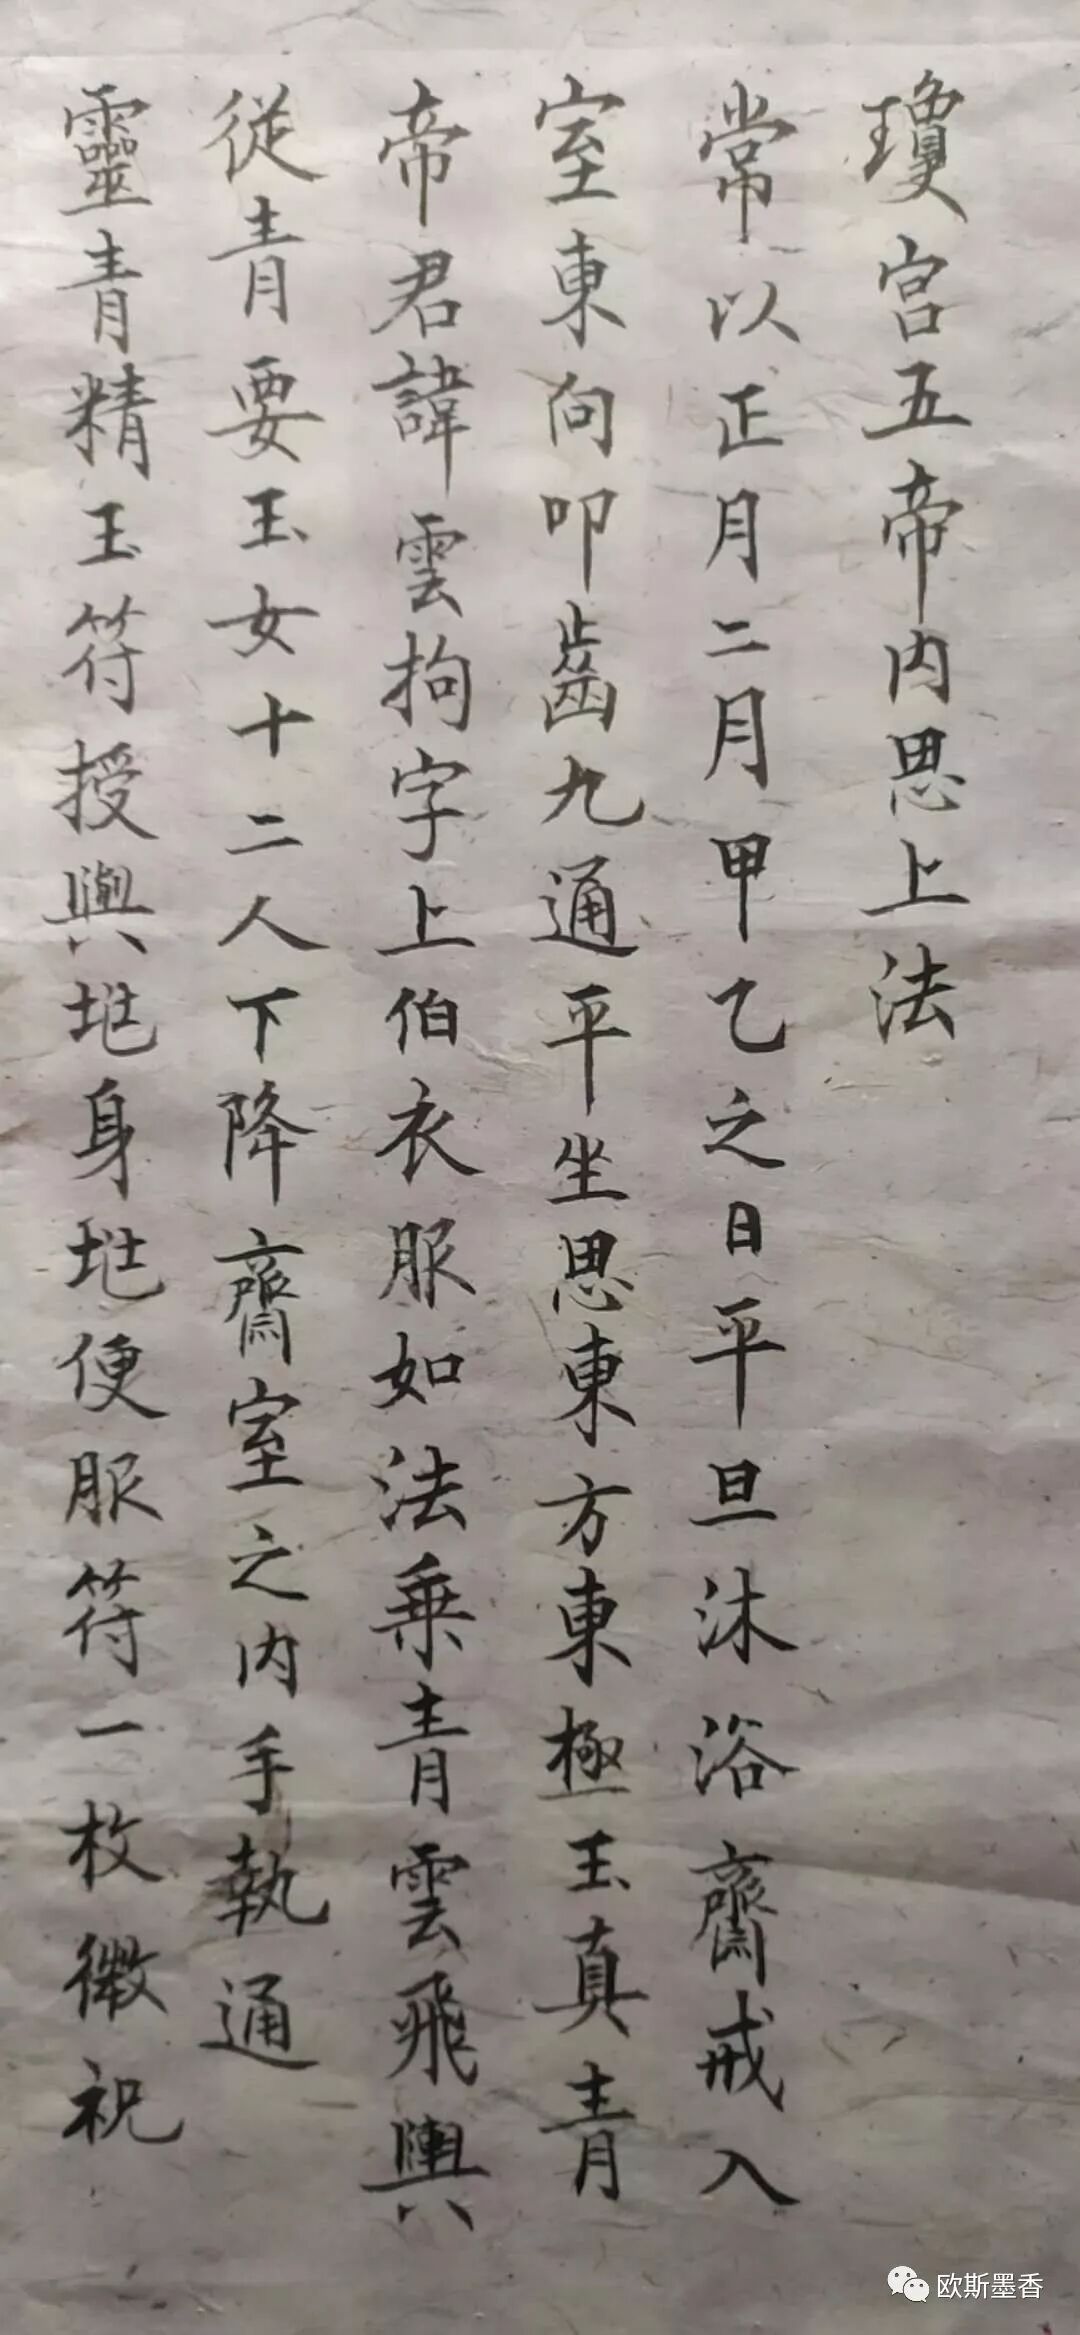 瓊宮五帝内思上法
常以正月二月甲乙之日平旦沐浴齋戒入
室東向叩齒九通平坐思東方東極玉真青
帝君諱雲拘字上伯衣服如法乗青雲飛輿
從青要玉女十二人下降齋室之内手執通
靈青精玉符授與兆身兆便服符一枚微祝
欧斯墨香